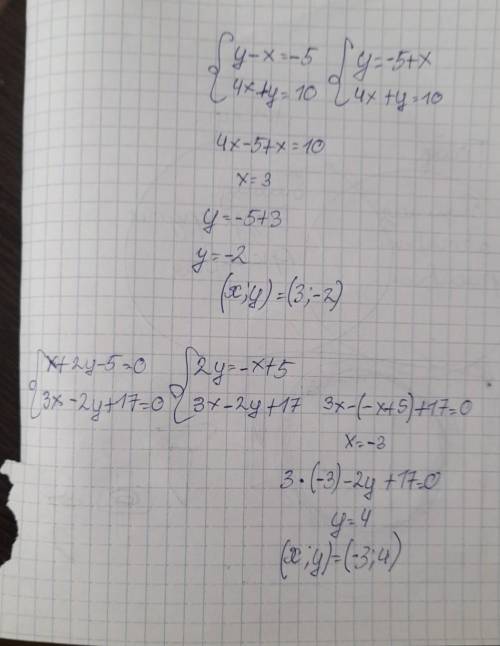 { y-x=-5 { y=-5+x
4x+y=10 4x+y=10
4x-5+x=10
x=3
y=-5+3
y=-2
(x;y)=(3;-2)
{ x+2y-5=0 { 2y=-x+5
3x-2y+17=0 3x-2y+17 3x-(-x+5)+17=0
x=-3
3·(-3)-2y+17=0
y=4
(x;y)=(-3;4)